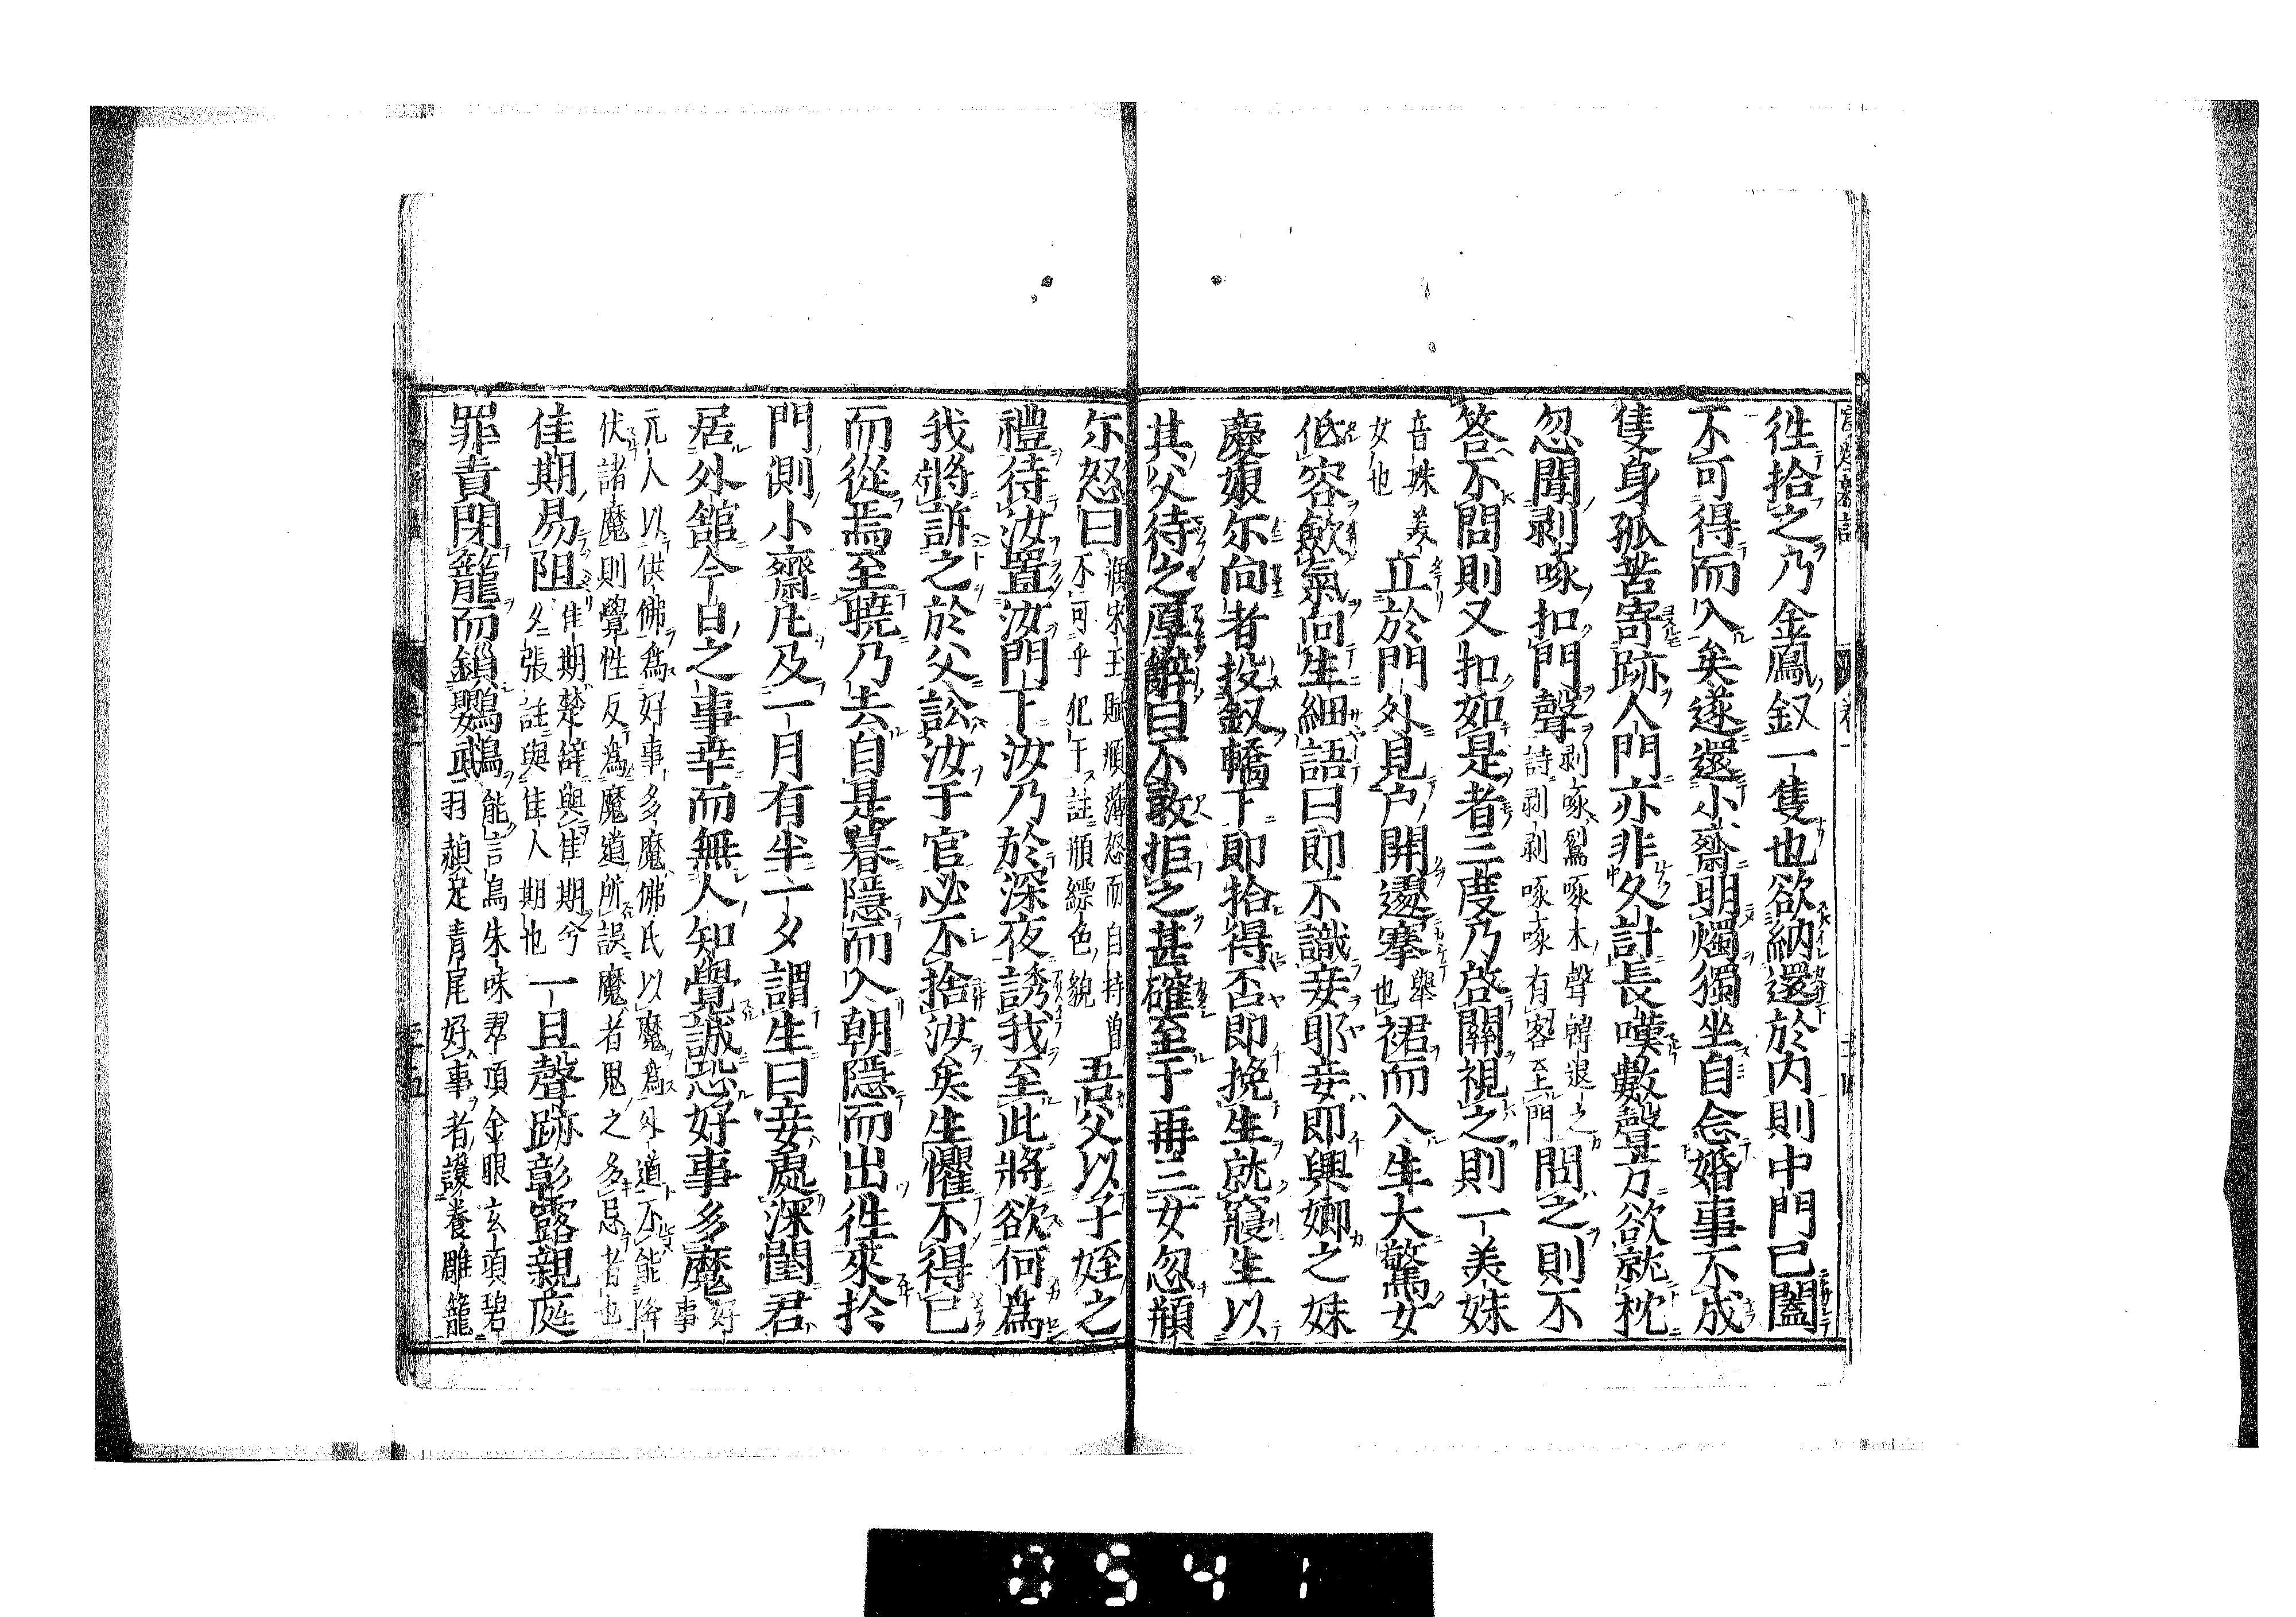 徃拾之乃金鳳釵一隻也欲納還於内則中門已闔
不可得而入矣遂還小齋明燭獨坐自念婚事不成
隻身孤苦寄跡人門亦非久計長嘆數聲方欲就枕
忽聞剥啄扣門聲
剥啄鴷啄木聲韓退之
詩剥剥啄啄有客至門
問之則不
答不問則又扣如是者三度乃啓關視之則一美姝
音姝美
女也
立於門外見户開遽搴
舉
也
裙而入生大驚女
低容歛氣向生細語曰即不識妾耶妾即興娜之妹
慶娘尓向者投釵轎下即拾得否即挽生就寢生以
其父待之厚辭曰不敢拒之甚確至于再三女忽頩
尓怒曰
宋玉賦頩薄怒而自持
不可乎犯干註頩縹色貌
吾父以子姪之
禮待汝置汝門下汝乃於深夜誘我至此將欲何為
我將訴之於父訟汝于官必不捨汝矣生懼不得已
而從焉至曉乃去自是暮隱而入朝隱而出徃來於
門側小齋凡及一月有半一夕謂生曰妾處深閨君
居外舘今日之事幸而無人知覺誠恐好事多魔
好
事
元人以供佛為好事多魔佛氏以魔為外道不能降
伏諸魔則覺性反為魔道所誤魔者鬼之多忌者也
佳期易阻
佳期楚辭與佳期兮
夕張註與佳人期也
一旦聲跡彰露親庭
罪責閉籠而鎖鸚鵡
能言鳥朱味翠頂金眼玄項碧
羽赬足青尾好事者護養雕籠
0541